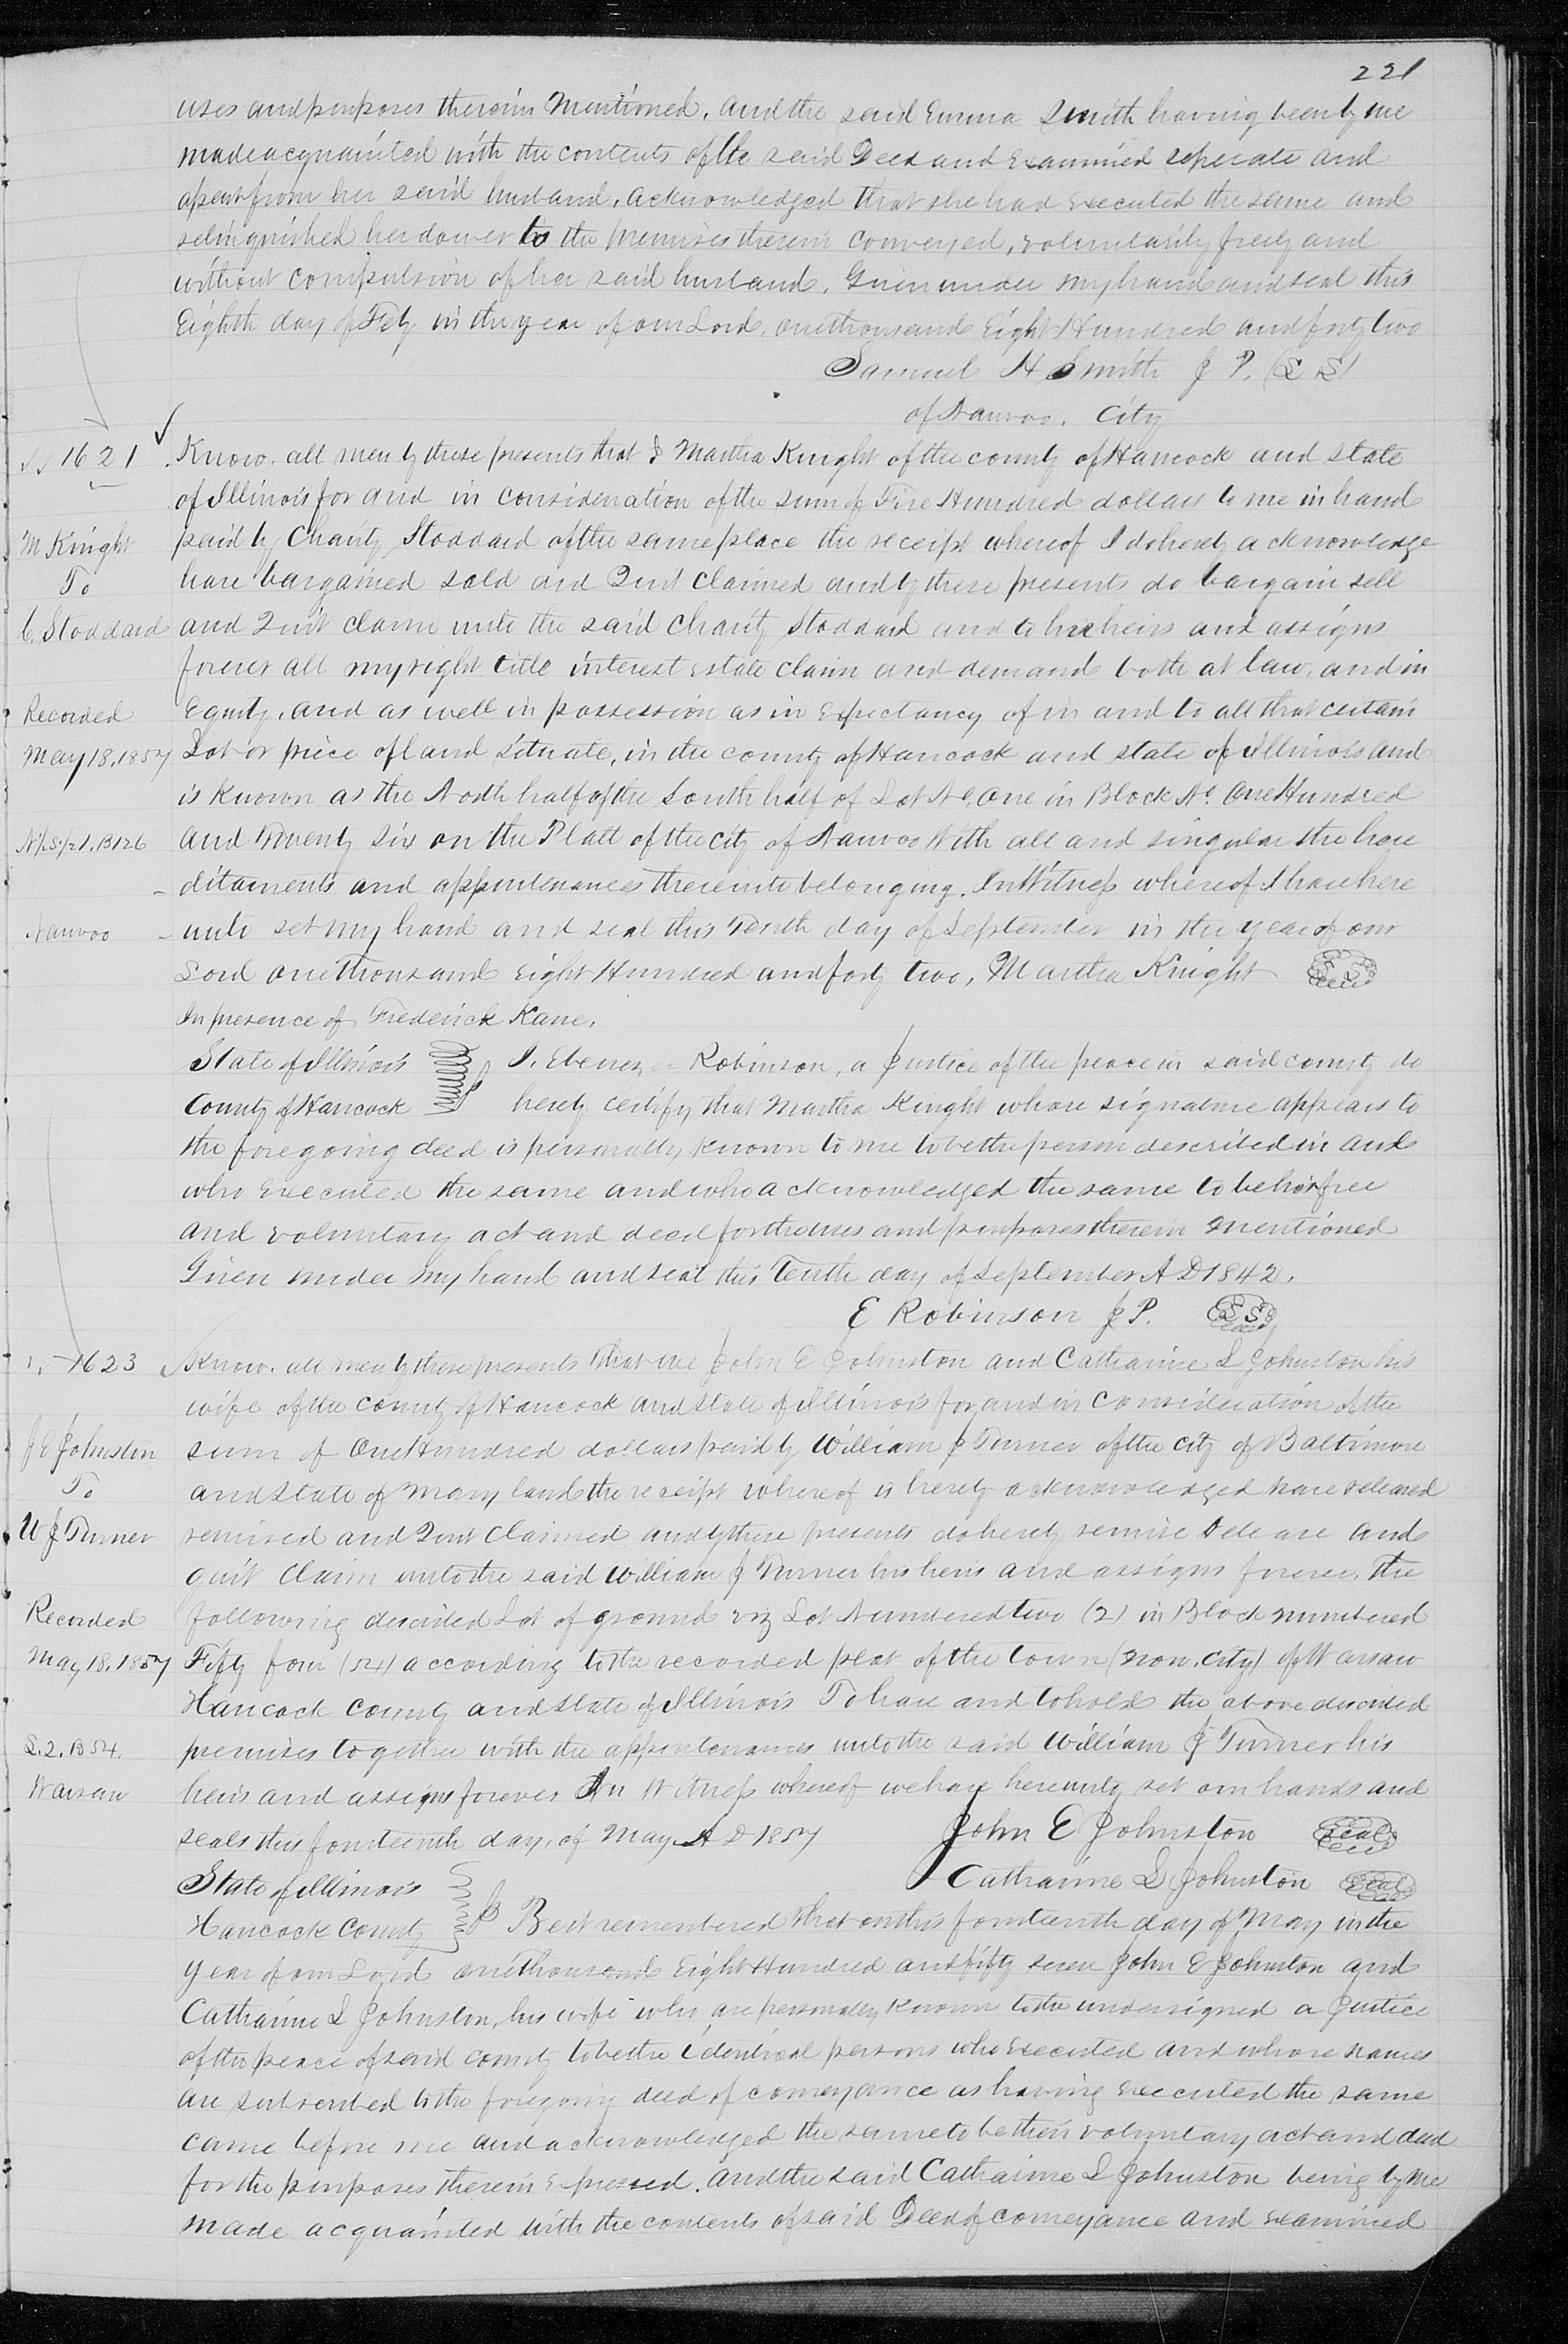 221
uses and purposes therein Mentioned, and the said Emma Smith having been by me
made acquainted with the contents of the said Deed and Examined seperate and
apart from her said husband, acknowledged that she had executed the same and
relinquished her dower to the premises therein conveyed, voluntarily freely and
without compulsion of her said husband. Given under my hand and seal this
Eighth day of Feby in the year of our Lord, one thousand Eight Hundred and forty two
Samuel H Smith J P. (L S)
of Nauvoo. City
1621
M Knight
To
C. Stoddard
Recorded
May 18. 1857
Nauvoo
Know. all men by these presents that I Martha Knight of the county of Hancock and state
of Illinois for and in consideration of the sum of Five Hundred dollars to me in hand
paid by Charity Stoddard of the same place the receipt whereof I do hereby acknowledge
have bargained sold and Quit Claimed and by these presents do bargain sell
and Quit claim unto the said Charity Stoddard and to her heirs and assigns
forever all my right title interest estate claim and demand both at law. and in
Equity. and as well in possession as in Expectancy of in and to all that certain
Lot or piece of land situate, in the county of Hancock and state of Illinois and
is known as the North half of the South half of Lot No. one in Block No. One Hundred
and Twenty Six on the Platt of the city of Nauvoo With all and singular the here
ditaments and appurtenances thereunto belonging. In Witness whereof I have here
unto set my hand and seal this Tenth day of September in the year of our
Lord one thousand eight Hundred and forty two, Martha Knight (L S)
In presence of Frederick Kane.
State of Illinois I. Ebenezer Robinson, a Justice of the peace in said county do
County of Hancock hereby certify that Martha Kinght whose signature appears to
the foregoing deed is personally known to me to be the person described in and
who Executed the same and who acknowledged the same to be her free
and voluntary act and deed for the uses and purposes therein mentioned
Given under my hand and seal this Tenth day of September A D 1842.
E Robinson J P. (L S)
1623
J E Johnston
To
W J Turner
Recorded
May 18. 1857
L. 2. B 54.
Warsaw
Know. all men by these presents that we John E Johnston and Catharine L Johnston his
wife of the county of Hancock and state of Illinois for and in consideration of the
sum of One Hundred dollars paid by William J Turner of the city of Baltimore
and State of Maryland the receipt whereof is hereby acknowledged have released
remised and Quit Claimed and by these presents do hereby remise release and
quit Claim unto the said William J Turner his heirs and assigns forever. the
following described Lot of ground viz Lot Numbered two (2) in Block numbered
Fifty four (54) according to the recorded plat of the town (now. city) of Warsaw
Hancock County and state of Illinois To have and to hold the above described
premises together with the appurtenances unto the said William J Turner his
heirs and assigns forever In Witness whereof we have hereunto set our hands and
seals this fourteenth day. of May A D 1857 John E Johnston (Seal)
Catharine L Johnston (Seal)
State of Illinois
Hancock County Be it remembered that on this fourteenth day of May in the
year of our Lord one thousand Eight Hundred and fifty seven John E Johnston and
Catharine L Johnston, his wife who are personaly known to the undersigned a Justice
of the peace of said county to be the identical persons who Executed and whose names
are subscribed to the foregoing deed of conveyance as having executed the same
came before me and acknowledged the same to be their voluntary act and deed
for the purposes therein expressed. and the said Catharine L Johnston being by me
made acquainted with the contents of said Deed of conveyance and examined